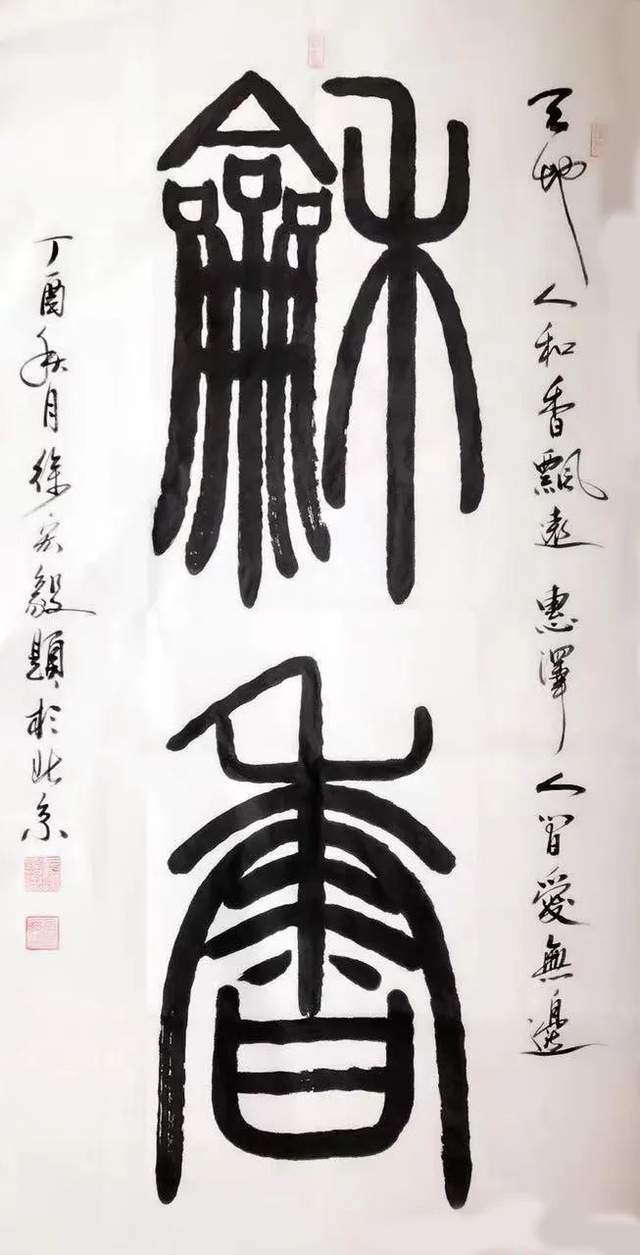 天地人和香飄遠 惠澤人間愛無邊
龢香
丁酉秋月徐宏毅題於北京